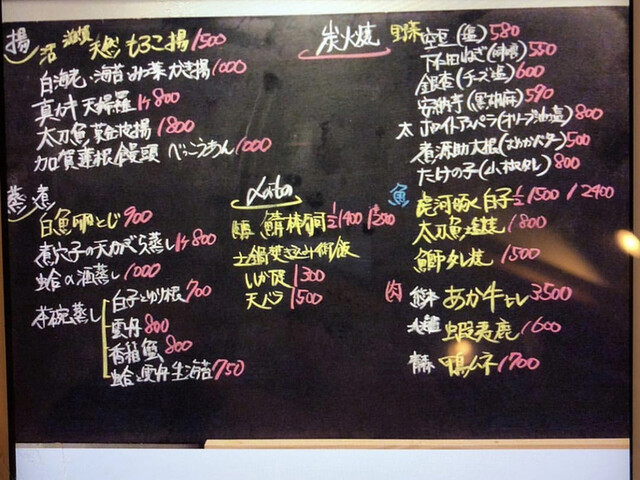 揚
活 滋賀 天然 もろこ揚 1500
白海老、海苔、みつ葉 かき揚 1000
真ガキ 天婦羅 1ヶ800
太刀魚 黄金揚 1800
加賀蓮根 饅頭 べっこうあん 1000
蒸 煮
白魚 卵とじ 900
煮穴子の天かぶら蒸し 1ヶ800
蛤の酒蒸し 1000
茶碗蒸し
白子とゆり根 700
雲丹 800
香箱蟹 800
蛤と雲丹 生海苔 750
鯖棒鮨 1/2 1400
土鍋炊き込み御飯
いか 1300
天バラ 1500
炭火焼
野菜 空豆(塩) 580
下仁田ねぎ(味噌) 550
銀杏(チーズ塩) 600
安納芋(黒胡麻) 590
太 ホワイトアスパラ(オリーブ油塩) 800
煮源助大根 500
たけの子(山椒タレ) 800
魚
虎河ふく白子 1/2 1500 / 2400
太刀魚塩焼 1800
鰤タレ焼 1500
肉
熊本 あか牛ヒレ 3500
北海道 蝦夷鹿 1600
青森 鴨ムネ 1700